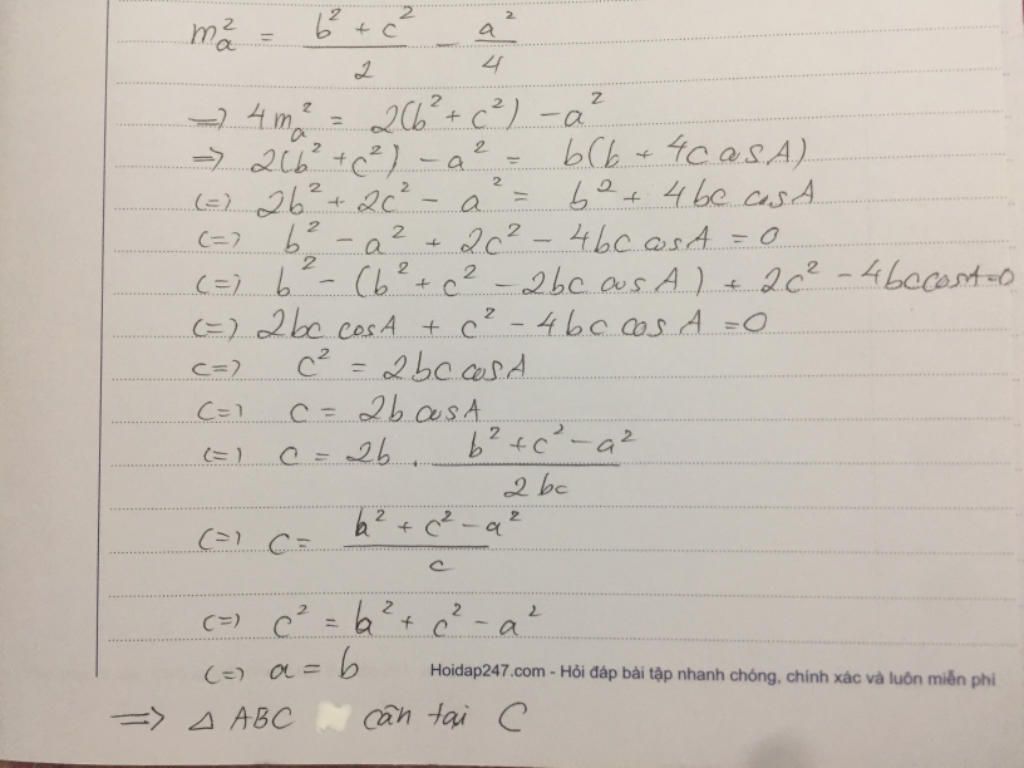 m_a^2 = (b^2 + c^2)/2 - a^2/4
=> 4m_a^2 = 2(b^2 + c^2) - a^2
=> 2(b^2 + c^2) - a^2 = b(b + 4c cosA)
(=) 2b^2 + 2c^2 - a^2 = b^2 + 4bc cosA
(=) b^2 - a^2 + 2c^2 - 4bc cosA = 0
(=) b^2 - (b^2 + c^2 - 2bc cosA) + 2c^2 - 4bc cosA = 0
(=) 2bc cosA + c^2 - 4bc cosA = 0
(=) c^2 = 2bc cosA
(=) c = 2b cosA
(=) c = 2b . (b^2 + c^2 - a^2)/(2bc)
(=) c = (b^2 + c^2 - a^2)/c
(=) c^2 = b^2 + c^2 - a^2
(=) a = b
Hoidap247.com - Hỏi đáp bài tập nhanh chóng, chính xác và luôn miễn phí
=> Δ ABC cân tại C